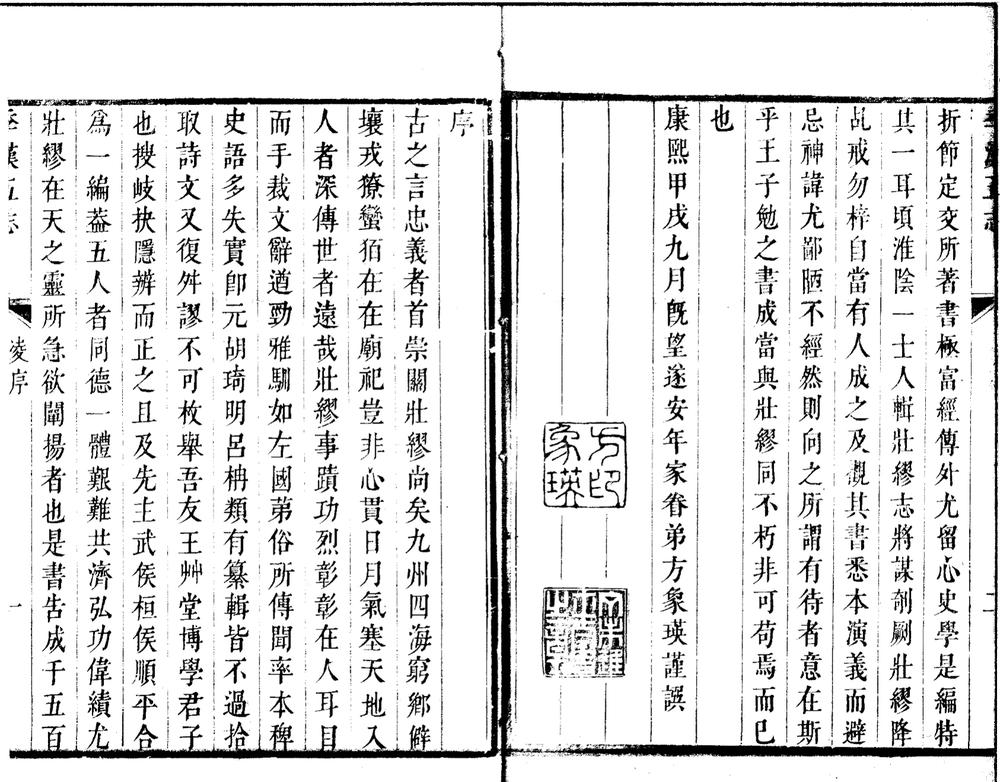 折節定交所著書極富經傳外尤留心史學是編特
其一耳頃淮陰一士人輯壯繆志將謀剞劂壯繆降
乩戒勿梓自當有人成之及觀其書悉本演義而避
忌神諱尤鄙陋不經然則向之所謂有待者意在斯
乎王子勉之書成當與壯繆同不朽非可苟焉而已
也
康熙甲戌九月旣望遂安年家眷弟方象瑛謹譔
方印象瑛
序
古之言忠義者首崇關壯繆尚矣九州四海窮鄉僻
壤戎獠蠻貊在在廟祀豈非心貫日月氣塞天地入
人者深傳世者遠哉壯繆事蹟功烈彰彰在人耳目
而手裁文辭遒勁雅馴如左國苐俗所傳聞率本稗
史語多失實卽元胡琦明呂柟類有纂輯皆不過拾
取詩文又復舛謬不可枚舉吾友王艸堂博學君子
也搜岐抉隱辨而正之且及先主武侯桓侯順平合
爲一編葢五人者同德一體艱難共濟弘功偉績尤
壯繆在天之靈所急欲闡揚者也是書告成千五百
季漢五志
凌序
一